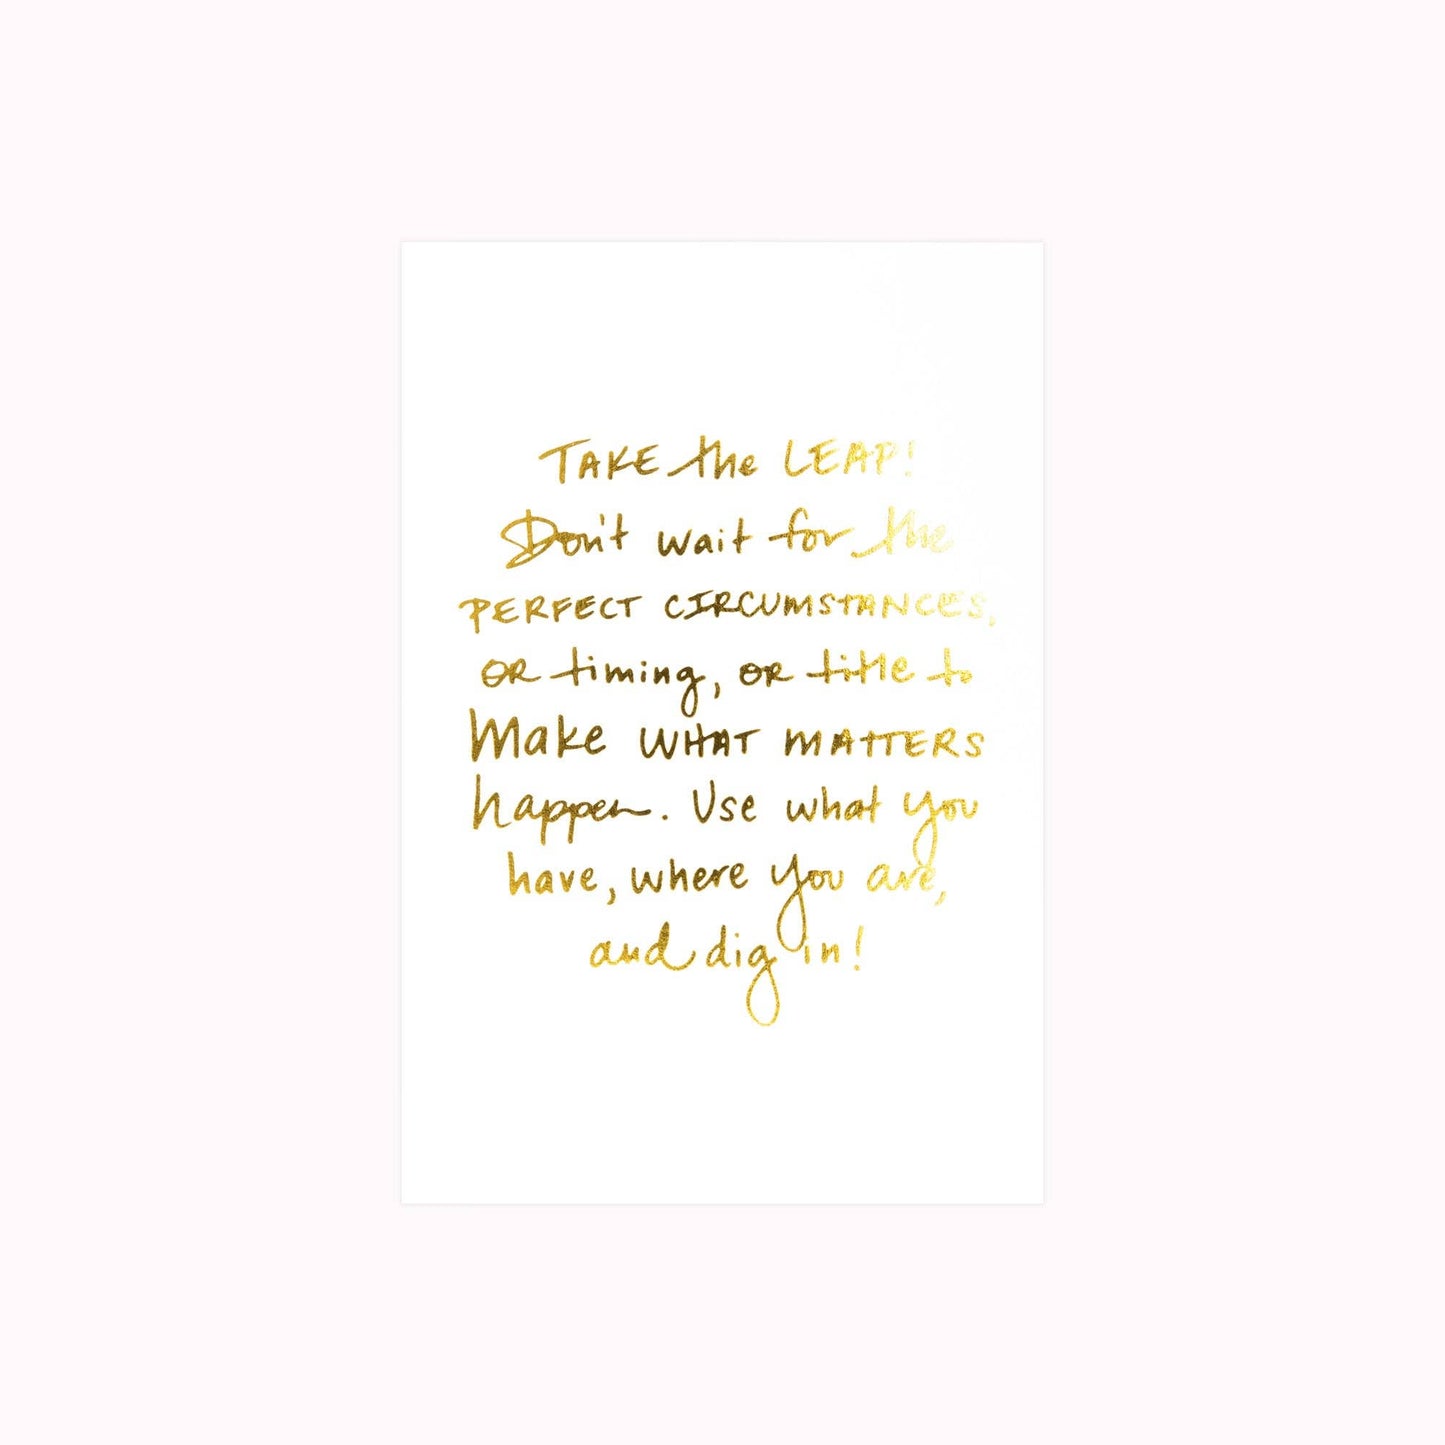 TAKE the LEAP!
Don't wait for the
PERFECT CIRCUMSTANCES,
OR timing, OR title to
Make WHAT MATTERS
happen. Use what you
have, where you are,
and dig in!